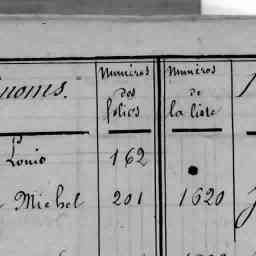 Numéros Numéros
noms. des de
folios la liste
Louis 162
Michel 201 1620